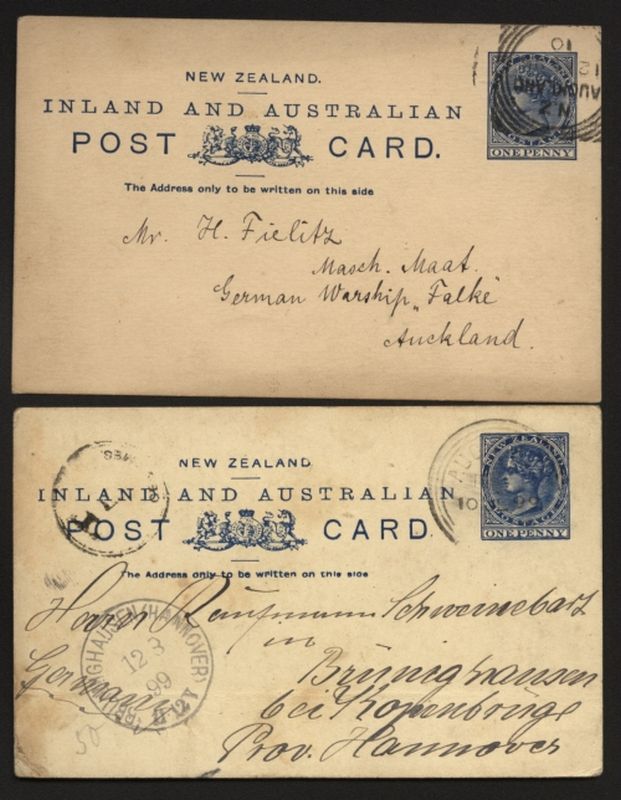 NEW ZEALAND.
INLAND AND AUSTRALIAN
POST CARD.
The Address only to be written on this side
NEW ZEALAND
POSTAGE
ONE PENNY
AUCKLAND
N.Z
Mr. H. Fielitz
Masch. Maat.
German Warship „Falke"
Auckland.
NEW ZEALAND
INLAND AND AUSTRALIAN
POST CARD
The Address only to be written on this side
NEW ZEALAND
POSTAGE
ONE PENNY
AUC
10 99
Herrn Kaufmann Schwenebart
in
Brünighausen
bei Kopenbrügge
Prov. Hannover
Germany
(HANNOVER)
12 3
99
50